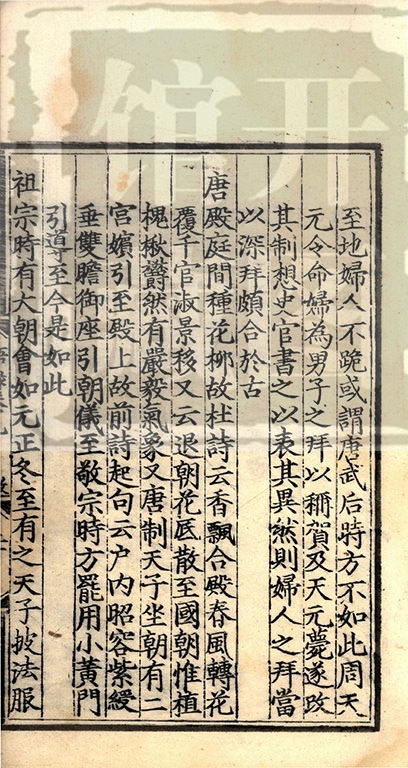 至地婦人不跪或謂唐武后時方不如此周天
元令命婦為男子之拜以稱賀及天元薨遂改
其制想史官書之以表其異然則婦人之拜當
以深拜頗合於古
唐殿庭間種花栁故杜詩云香飄合殿春風轉花
覆千官淑景移又云退朝花底散至國朝惟植
槐楸欝然有嚴毅氣象又唐制天子坐朝有二
宮嬪引至殿上故前詩起句云户内昭容紫綬
垂雙瞻御座引朝儀至敬宗時方罷用小黃門
引導至今是如此
祖宗時有大朝會如元正冬至有之天子披法服
開
館